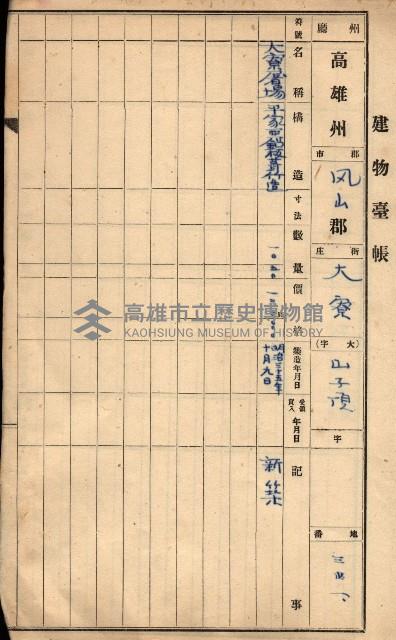 建物臺帳
州廳
高雄州
郡市
鳳山郡
街庄
大寮
大字
山子頂
字
地番
符號
名稱
構造
寸法
數量
價格
製造年月日
受領買入年月日
記事
大寮屠場
一〇五〇
明治三十五年
十月九日
新築
高雄市立歷史博物館
KAOHSIUNG MUSEUM OF HISTORY